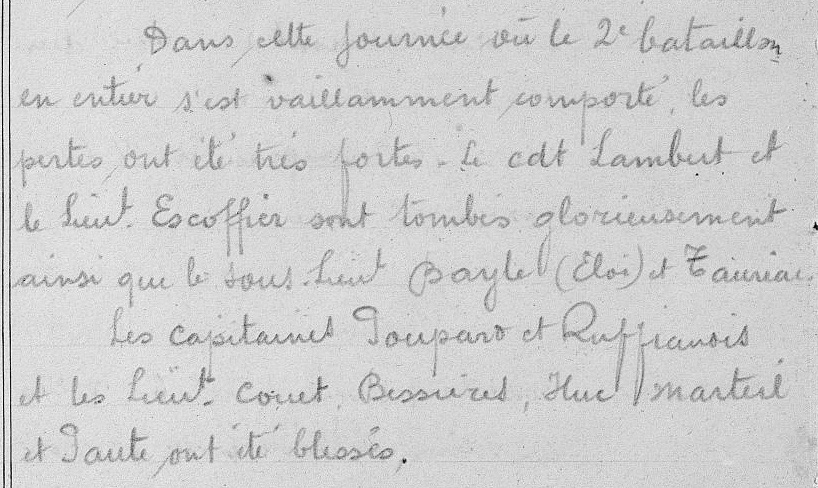 Dans cette journée où le 2e bataillon
en entier s'est vaillamment comporté, les
pertes ont été très fortes. Le cdt Lambert et
le Lieut. Escoffier sont tombés glorieusement
ainsi que le sous-Lieut Bayle (Eloi) et Tauriac.
Les capitaines Poupard et Ruffianois
et les Lieut. Couet, Bessières, Huc Marteil
et Paute ont été blessés.